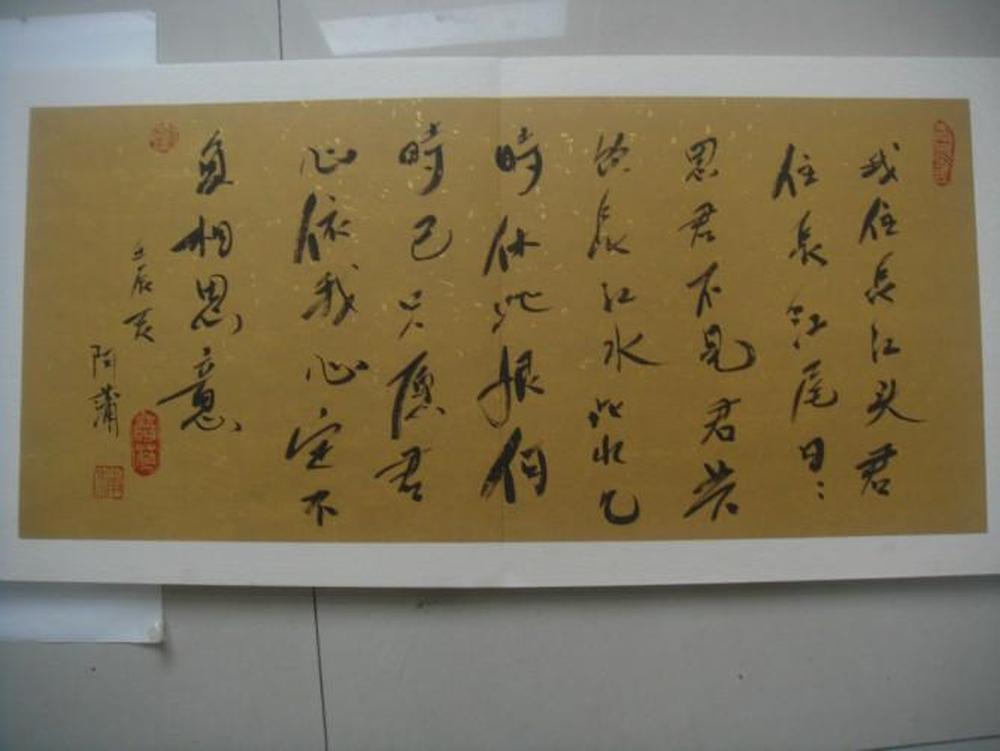 我住长江头君
住长江尾日:
思君不見君共
饮长江水此水几
時休此恨何
時已只愿君
心依我心定不
負相思意
壬辰夏
阿蒲